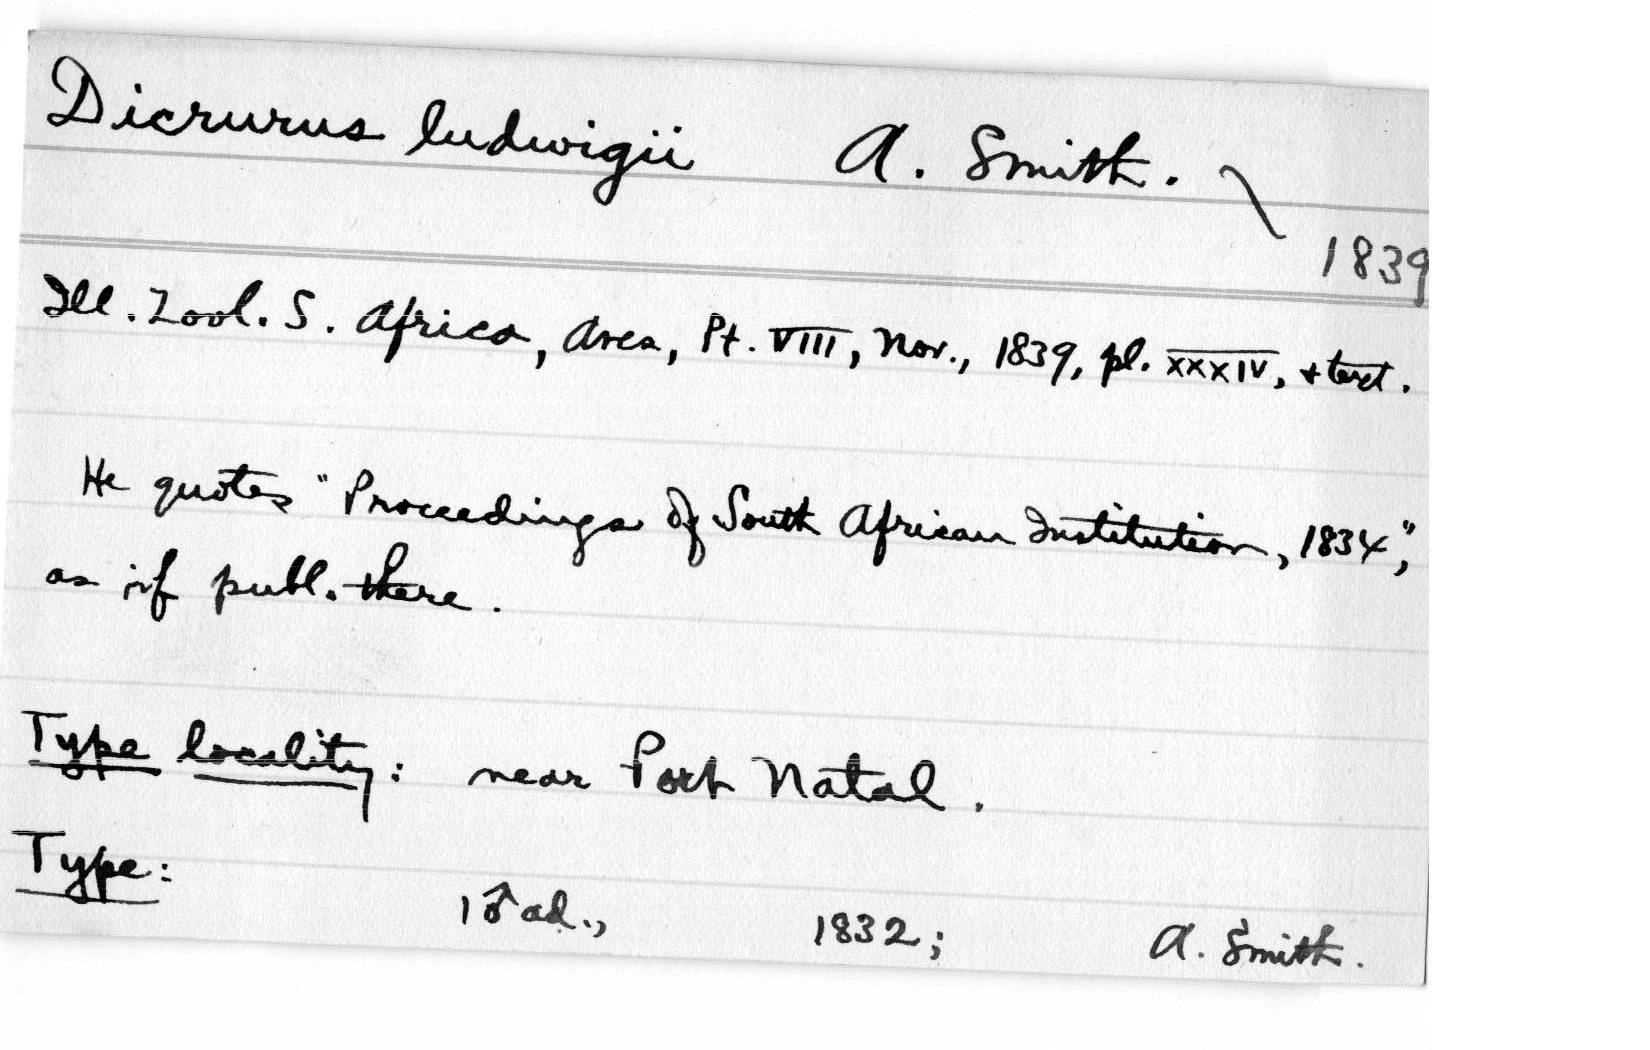 Dicrurus ludwigii A. Smith.
1839
Ill. Zool. S. Africa, Aves, Pt. VIII, Nov., 1839, pl. XXXIV, + text.
He quotes "Proceedings of South African Institution, 1834",
as if publ. there.
Type locality: near Port Natal.
Type:
1 ♂ ad., 1832; A. Smith.